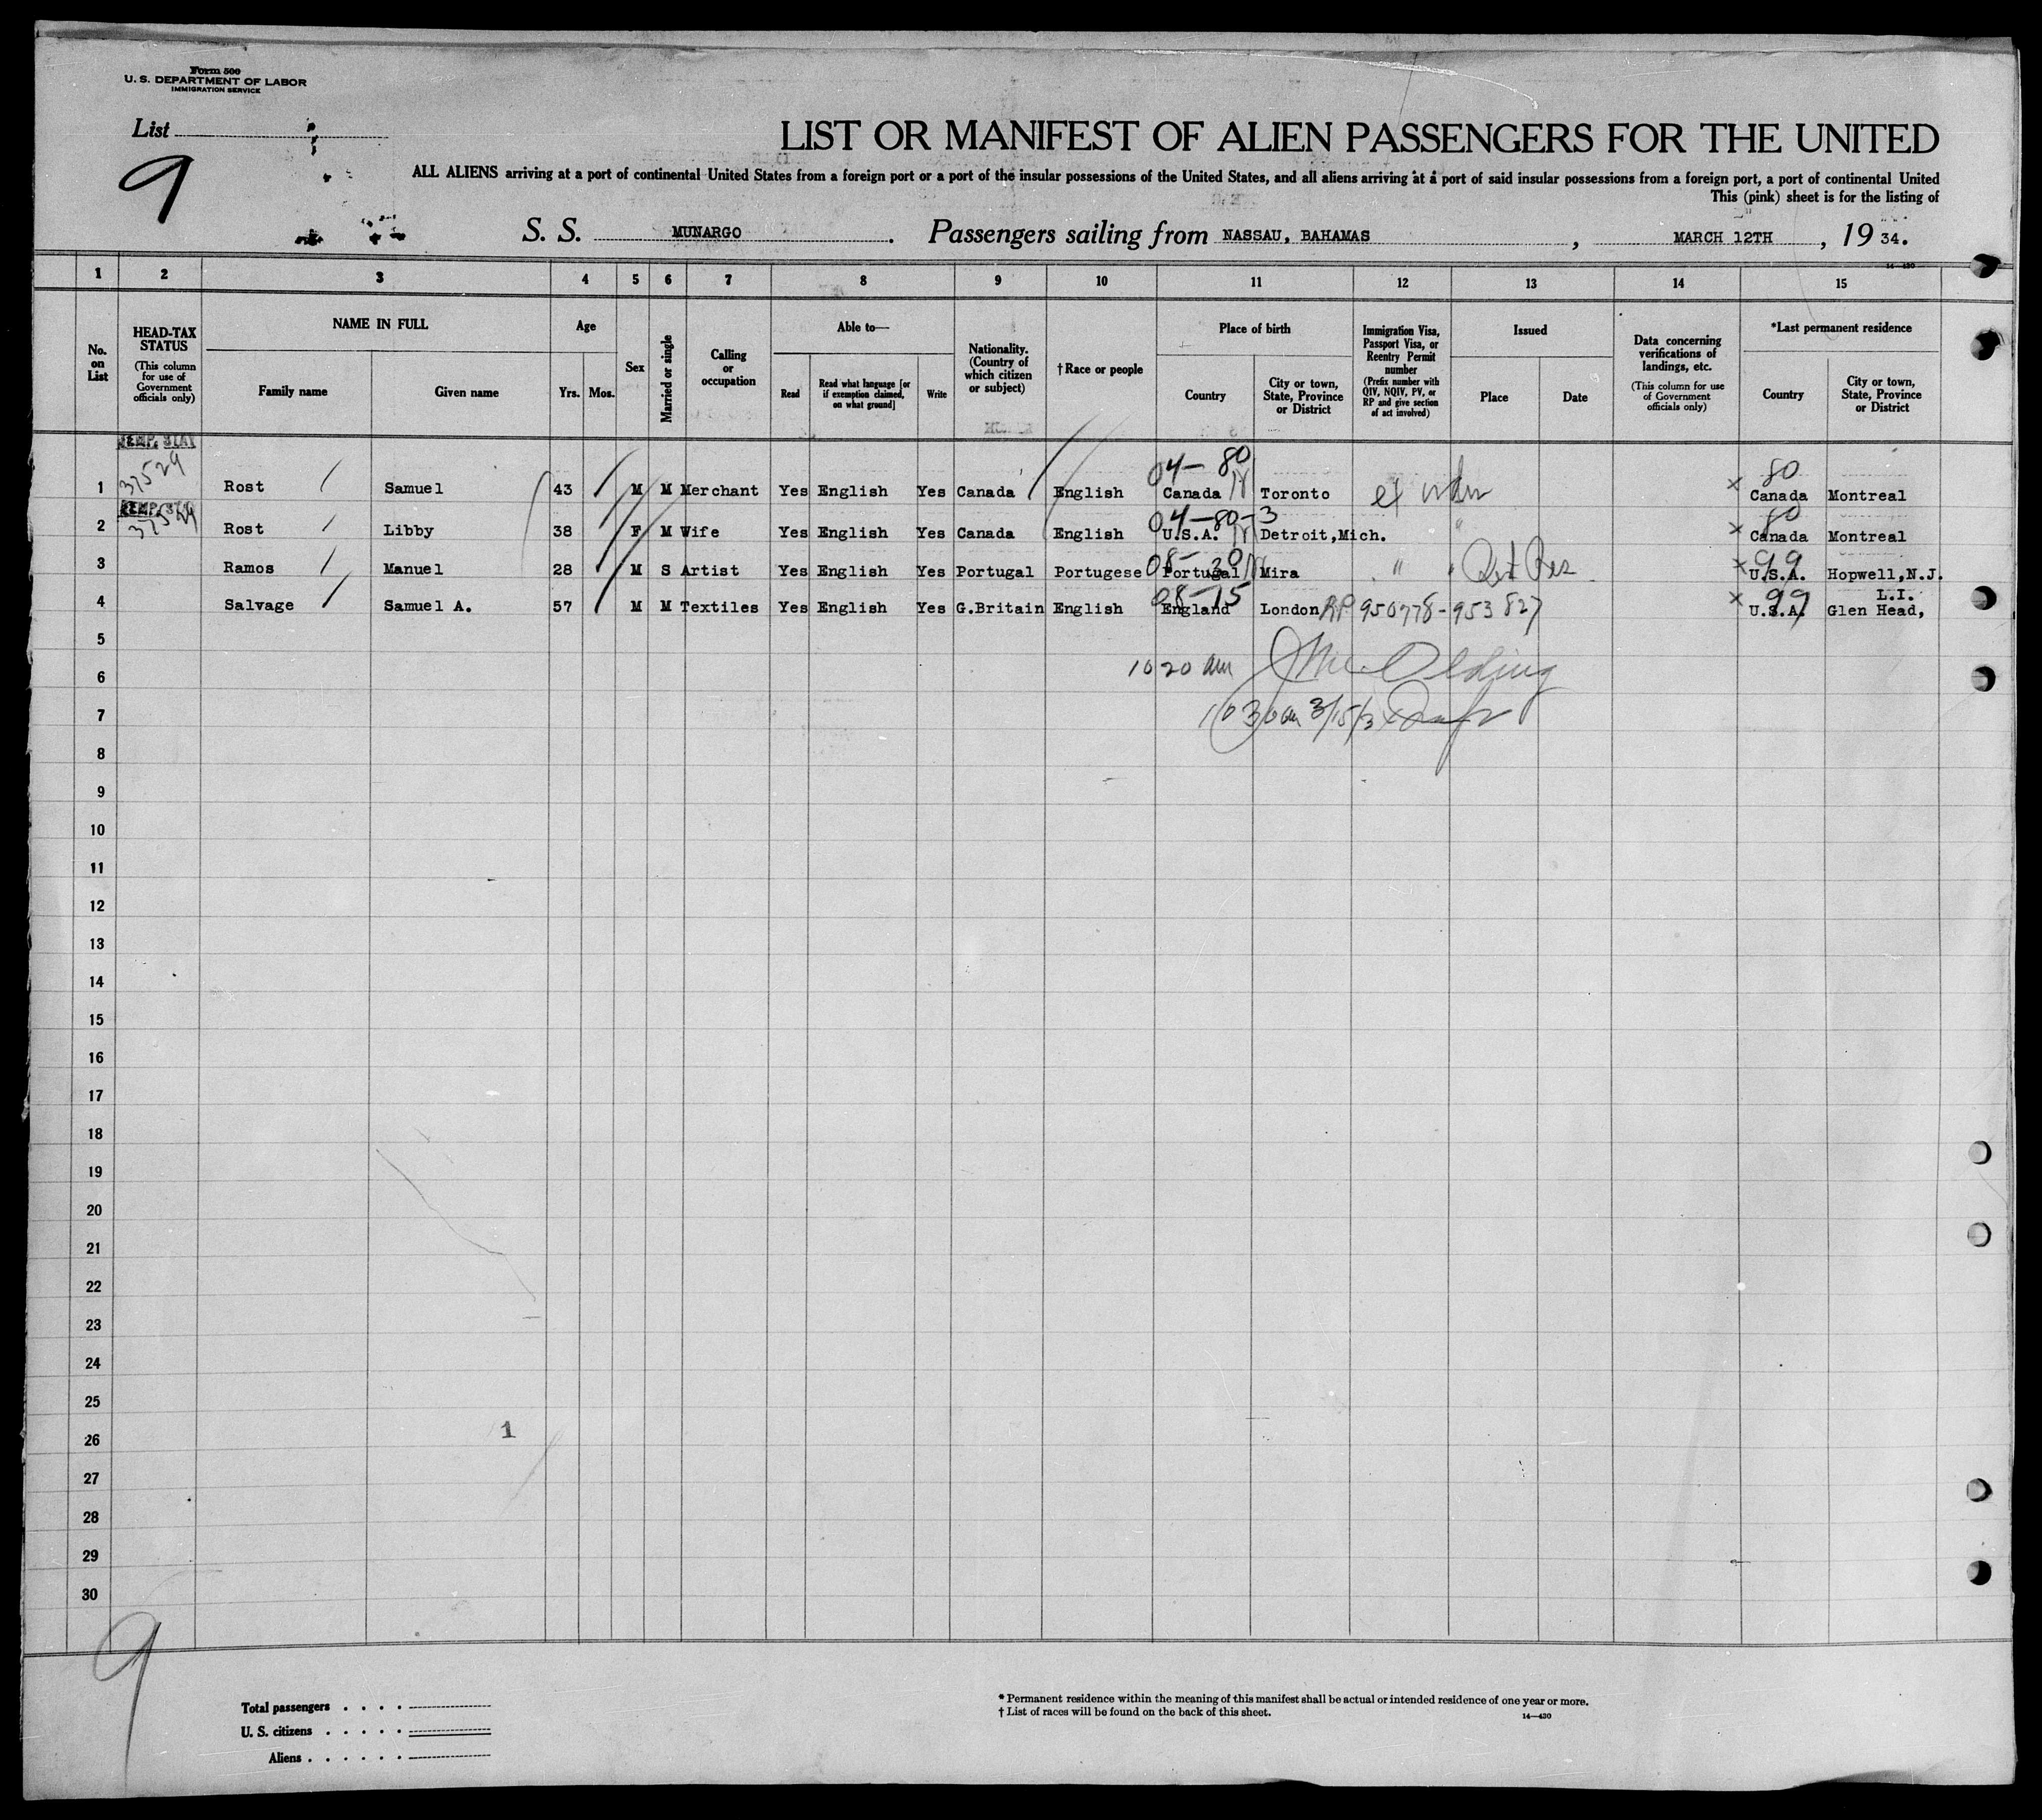 Form 500
U. S. DEPARTMENT OF LABOR
IMMIGRATION SERVICE
List
9
LIST OR MANIFEST OF ALIEN PASSENGERS FOR THE UNITED
ALL ALIENS arriving at a port of continental United States from a foreign port or a port of the insular possessions of the United States, and all aliens arriving at a port of said insular possessions from a foreign port, a port of continental United
This (pink) sheet is for the listing of
S. S. MUNARGO. Passengers sailing from NASSAU, BAHAMAS, MARCH 12TH, 19 34.
14—430
1 2 3 4 5 6 7 8 9 10 11 12 13 14 15
No. on List
HEAD-TAX STATUS
(This column for use of Government officials only)
NAME IN FULL
Family name
Given name
Age
Yrs. Mos.
Sex
Married or single
Calling or occupation
Able to—
Read
Read what language [or if exemption claimed, on what ground]
Write
Nationality. (Country of which citizen or subject)
†Race or people
Place of birth
Country
City or town, State, Province or District
Immigration Visa, Passport Visa, or Reentry Permit number
(Prefix number with QIV, NQIV, PV, or RP and give section of act involved)
Issued
Place
Date
Data concerning verifications of landings, etc.
(This column for use of Government officials only)
*Last permanent residence
Country
City or town, State, Province or District
TEMP. STAY
37529 04— 80 80
1 Rost Samuel 43 M M Merchant Yes English Yes Canada English Canada Toronto x Canada Montreal
TEMP. STAY
37529 04—80-3 80
2 Rost Libby 38 F M Wife Yes English Yes Canada English U.S.A. Detroit,Mich. " x Canada Montreal
08— 30 99
3 Ramos Manuel 28 M S Artist Yes English Yes Portugal Portugese Portugal Mira " " x U.S.A. Hopwell,N.J.
08—15 99 L.I.
4 Salvage Samuel A. 57 M M Textiles Yes English Yes G.Britain English England London RP 950778-953827 x U.S.A. Glen Head,
5
10 20 am
6
7
8
9
10
11
12
13
14
15
16
17
18
19
20
21
22
23
24
25
26 1
27
28
29
30
9
Total passengers . . . .
U. S. citizens . . . . .
Aliens . . . . . .
* Permanent residence within the meaning of this manifest shall be actual or intended residence of one year or more.
† List of races will be found on the back of this sheet.
14—430